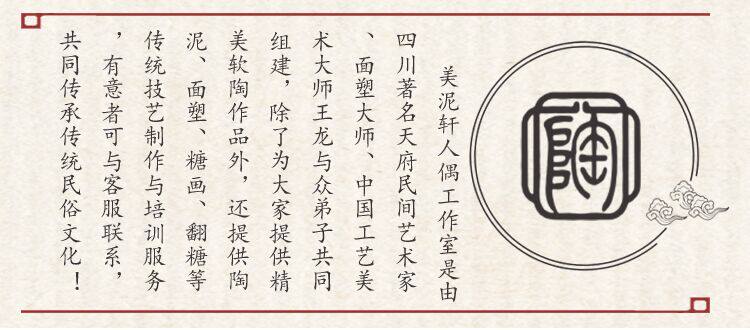 陶
美泥轩人偶工作室是由
四川著名天府民间艺术家
、面塑大师、中国工艺美
术大师王龙与众弟子共同
组建，除了为大家提供精
美软陶作品外，还提供陶
泥、面塑、糖画、翻糖等
传统技艺制作与培训服务
，有意者可与客服联系，
共同传承传统民俗文化！